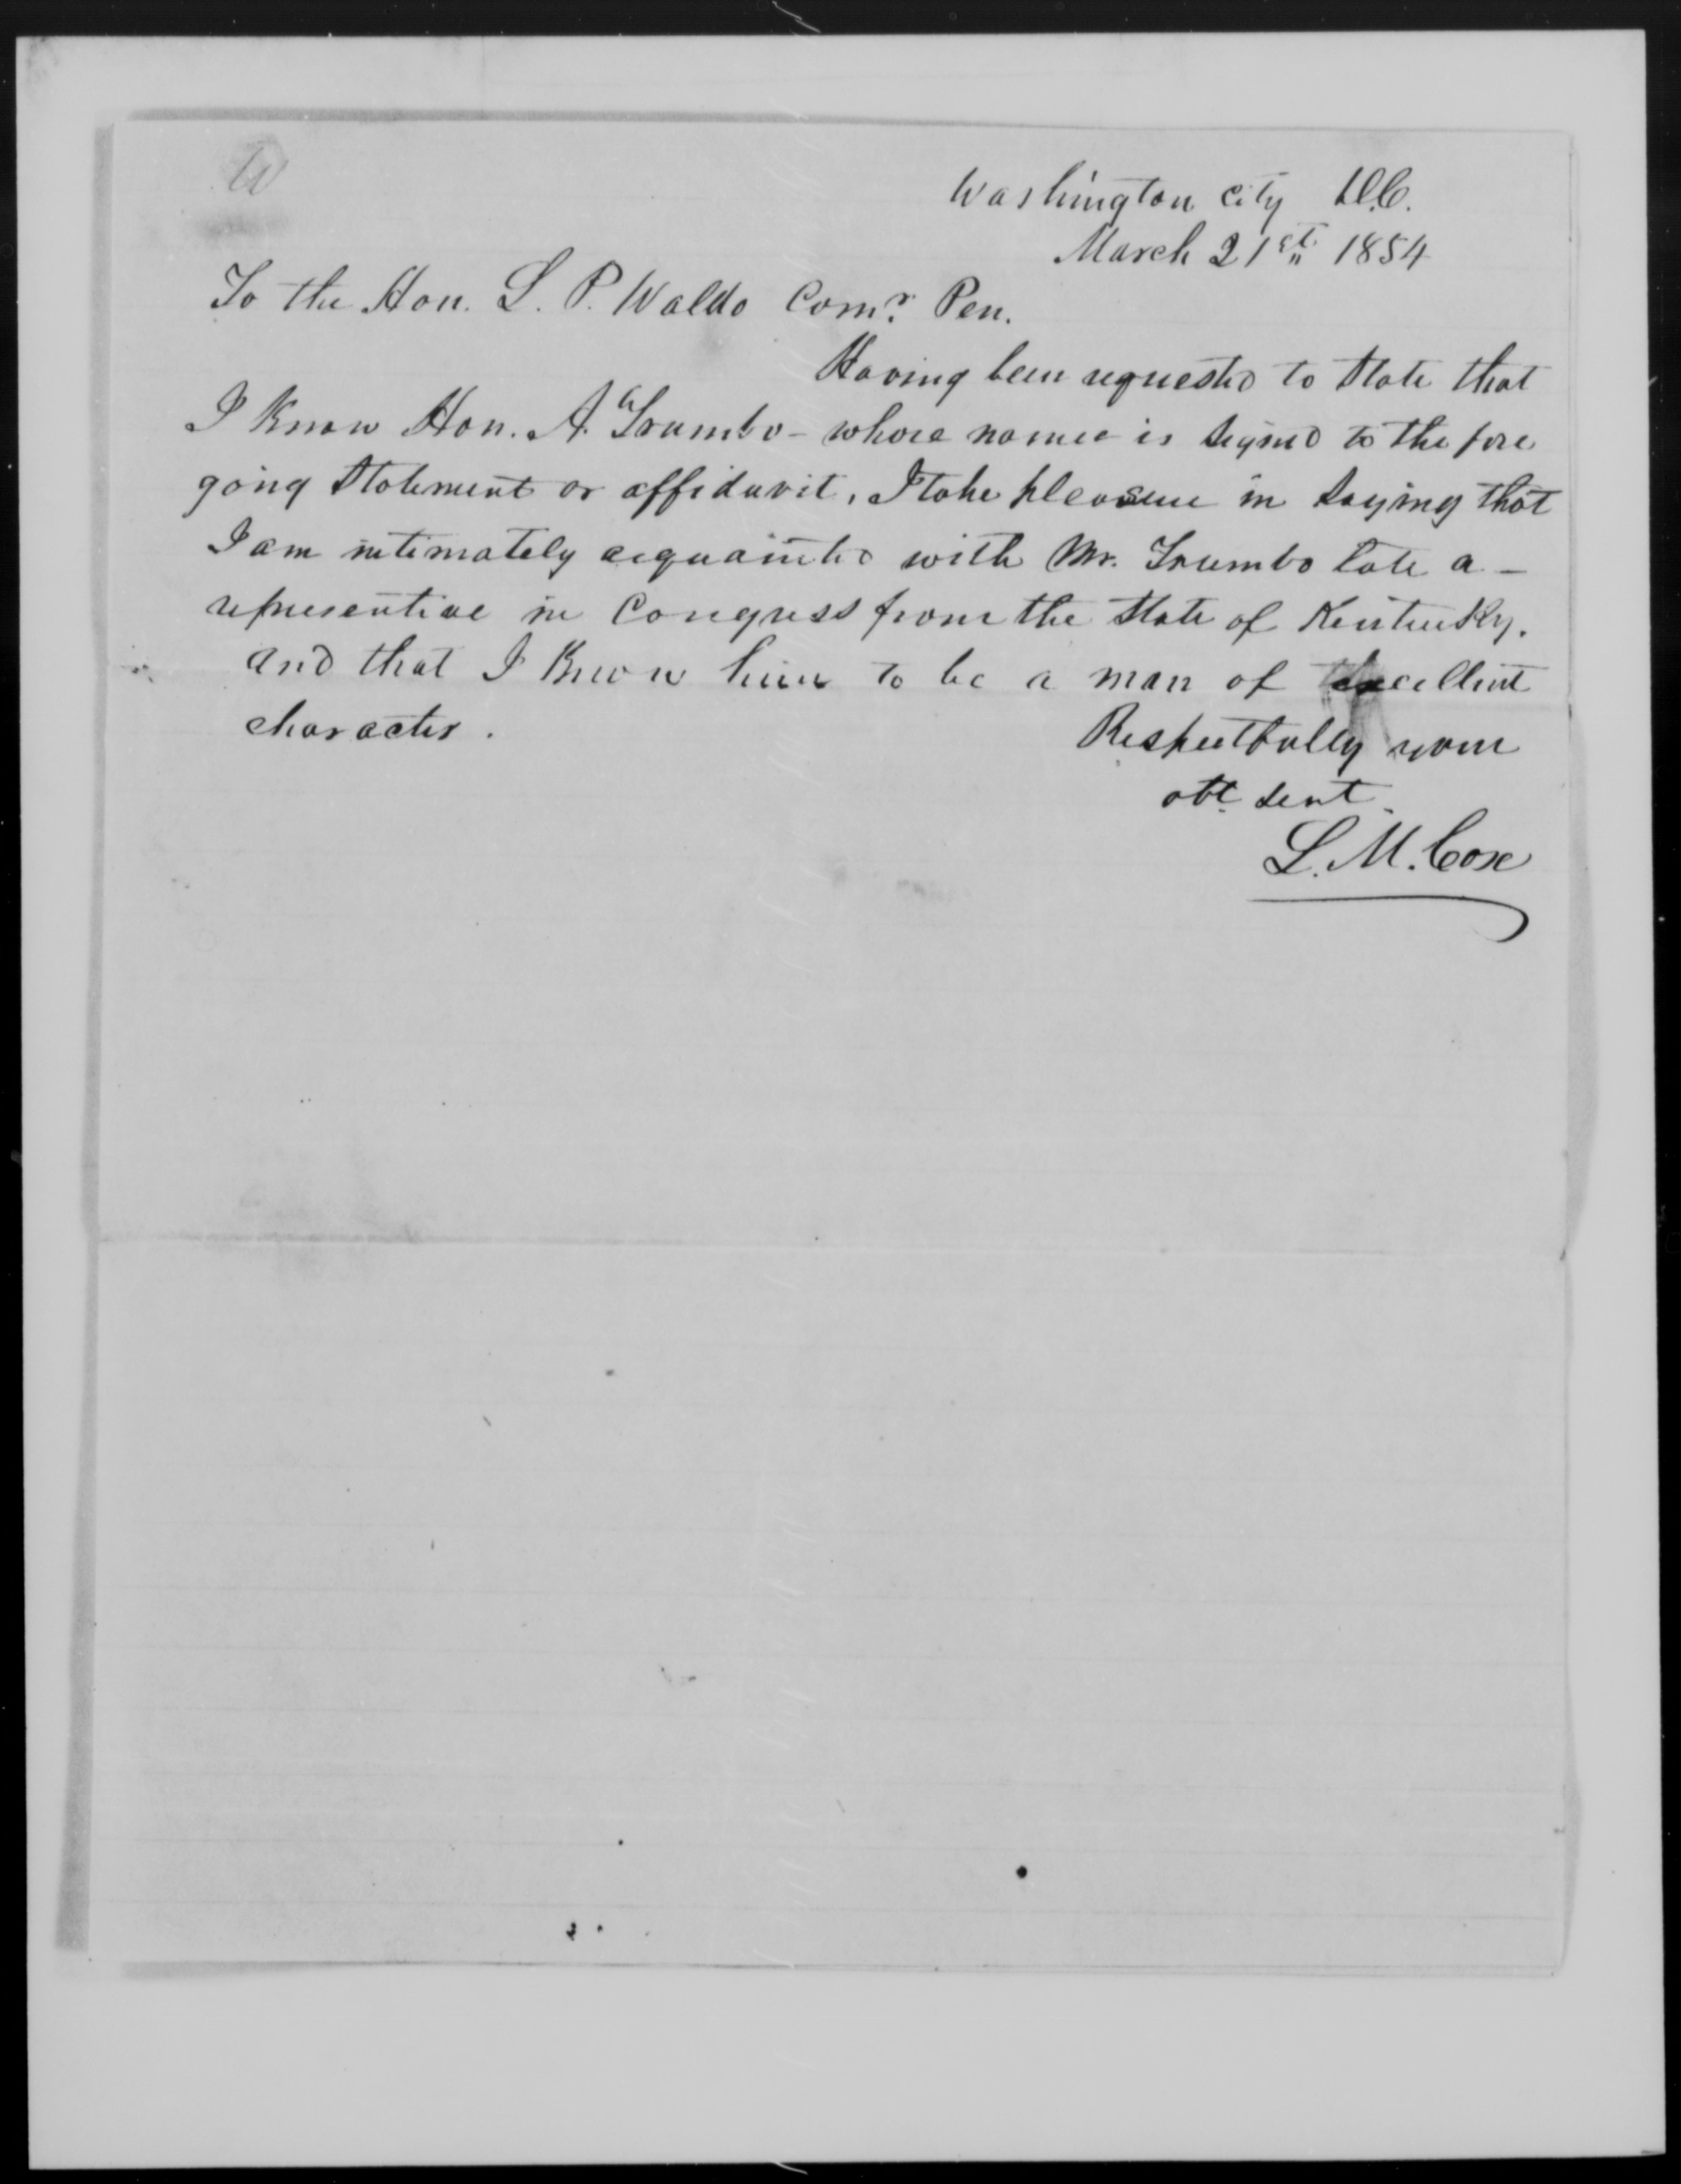 Washington City D.C.
March 21st 1854
To the Hon. L. P. Waldo Comr. Pen.
Having been requested to state that
I know Hon. A. Trumbo - whose name is signed to the fore
going statement or affidavit, I take pleasure in saying that
I am intimately acquainted with Mr. Trumbo late a -
representive in Congress from the State of Kentucky.
and that I know him to be a man of excellent
character.
Respectfully your
obt servt
L. M. Cox